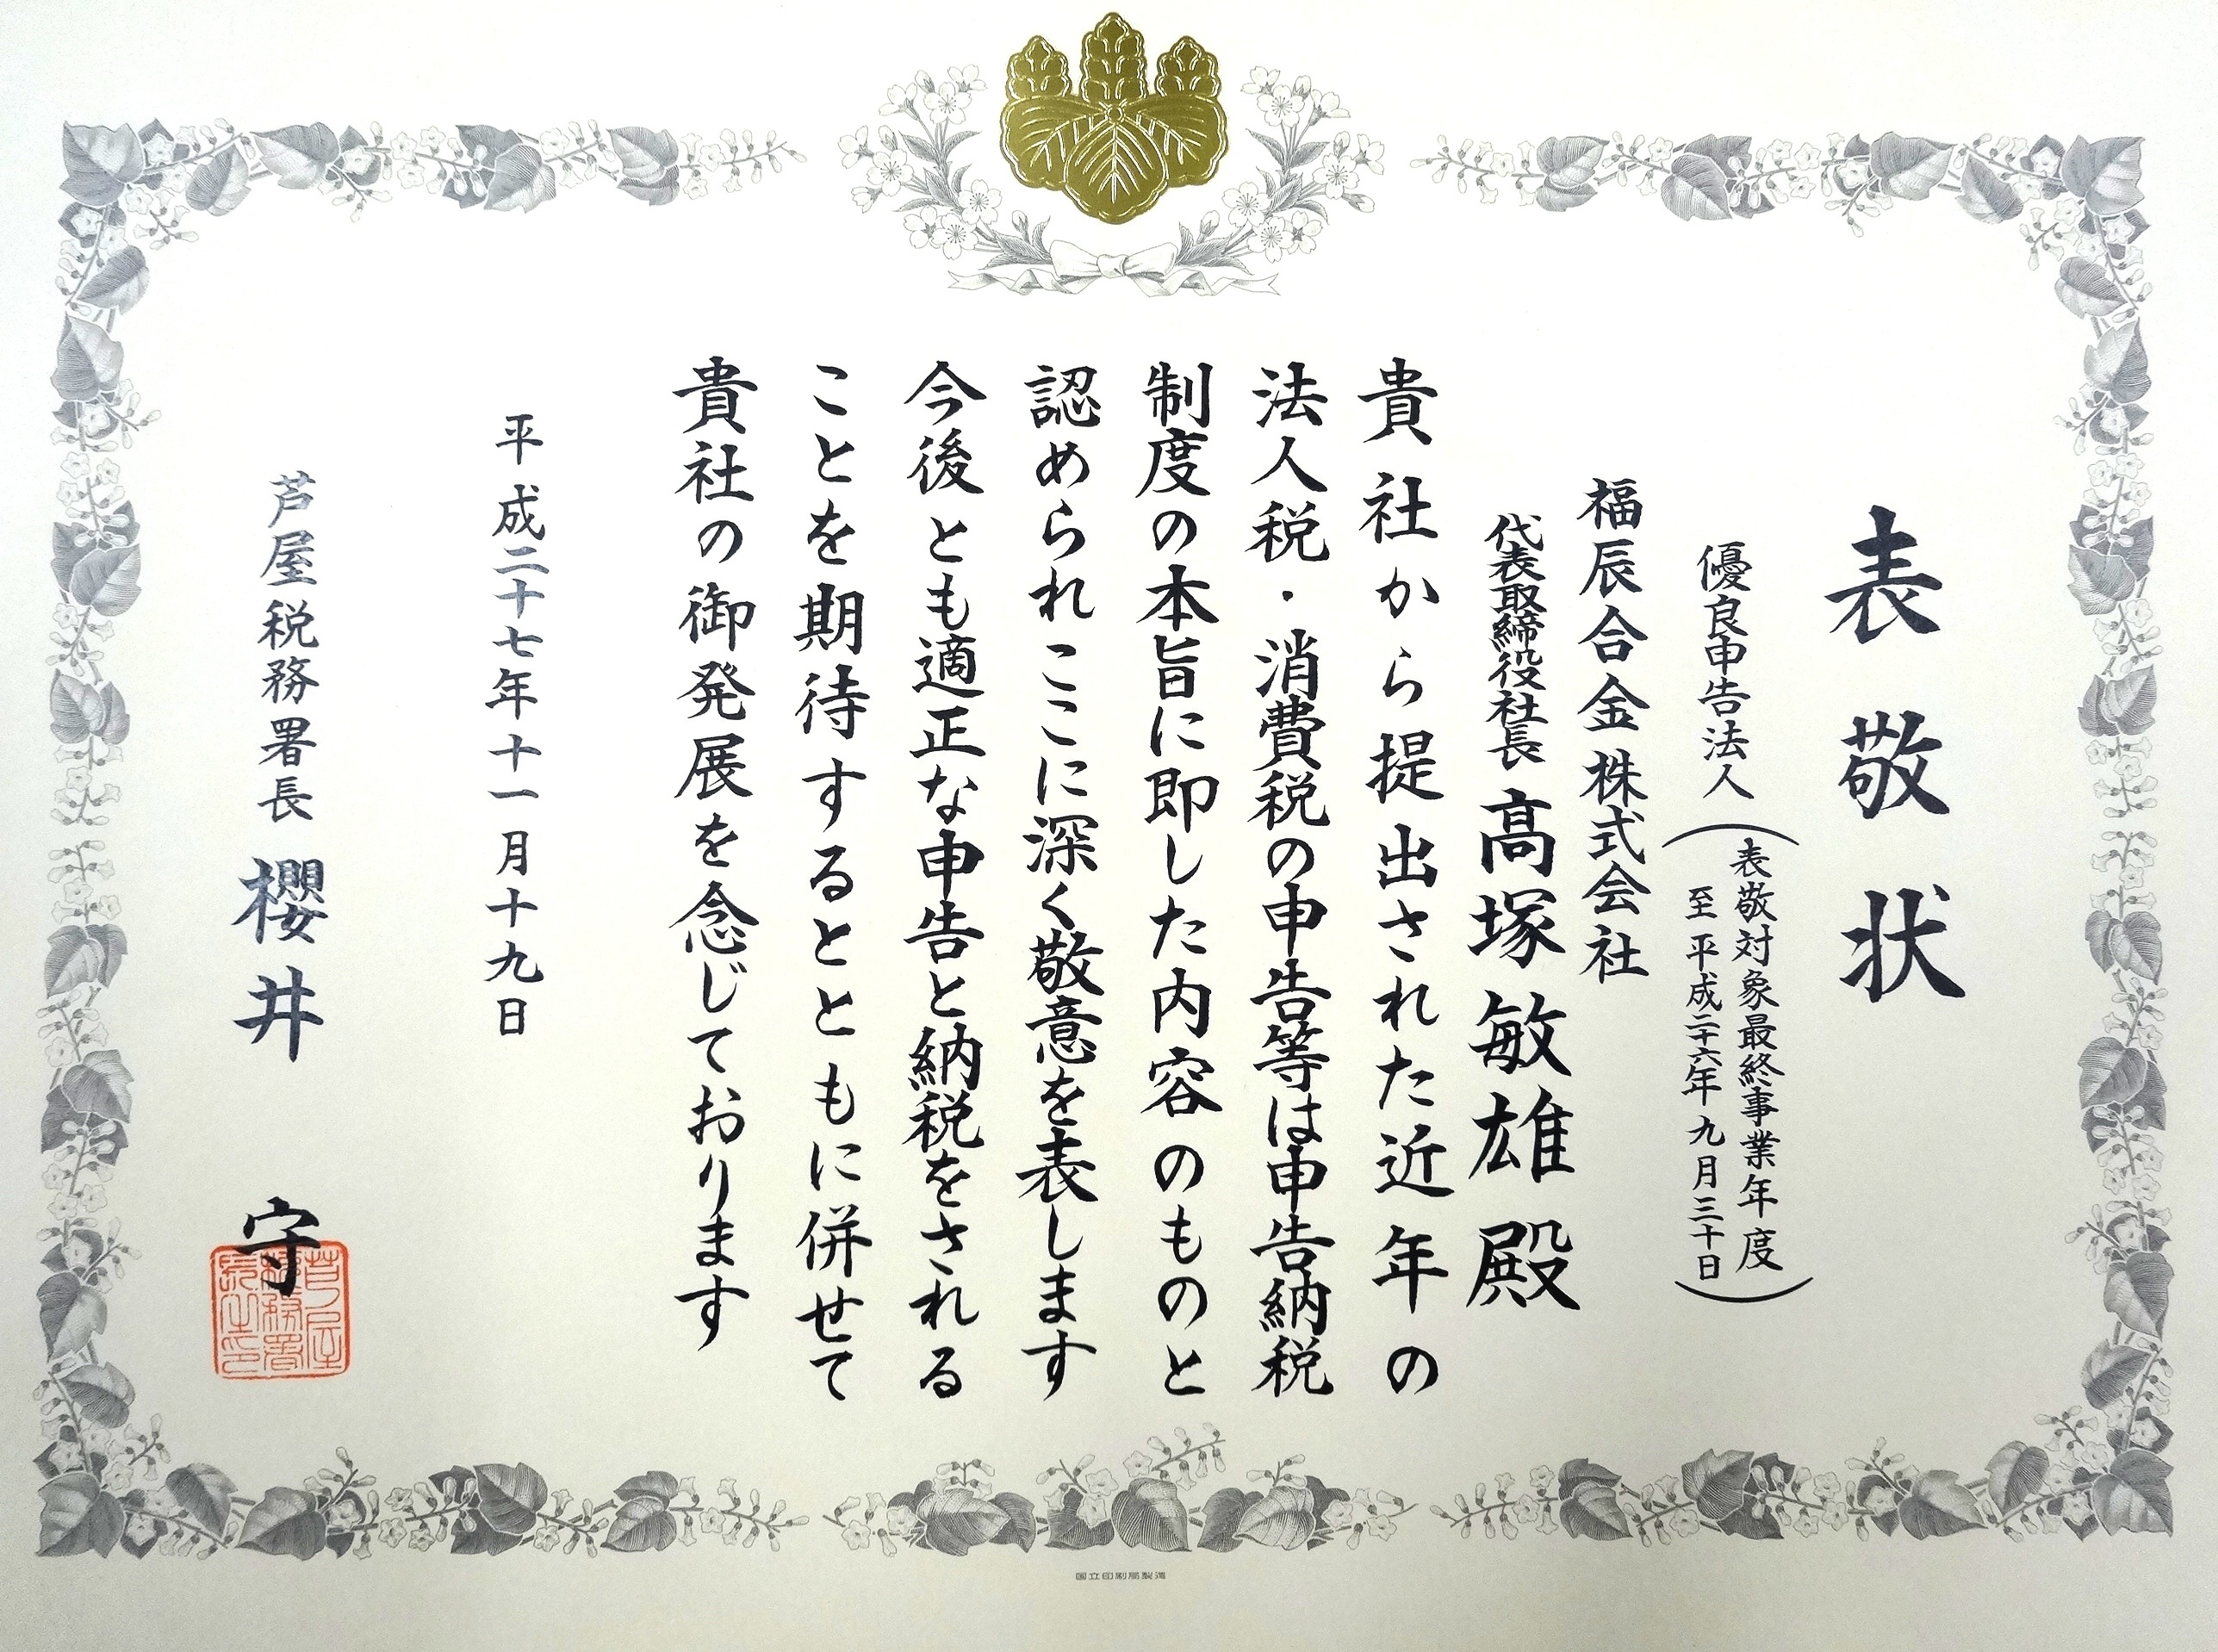 表敬状
優良申告法人
（表敬対象最終事業年度
至平成二十六年九月三十日）
福辰合金株式会社
代表取締役社長 髙塚敏雄殿
貴社から提出された近年の
法人税・消費税の申告等は申告納税
制度の本旨に即した内容のものと
認められここに深く敬意を表します
今後とも適正な申告と納税をされる
ことを期待するとともに併せて
貴社の御発展を念じております
平成二十七年十一月十九日
芦屋税務署長 櫻井 守
芦屋税務署長之印
国立印刷局製造